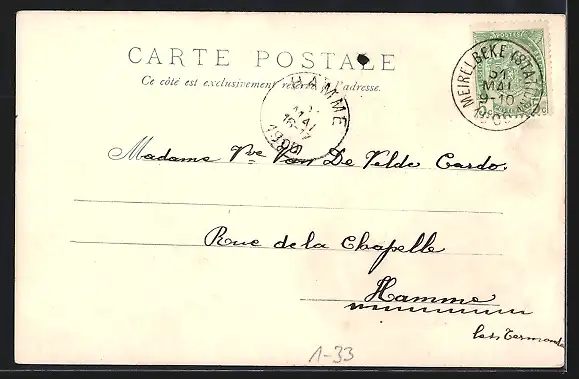 POSTES
CARTE POSTALE
Ce côté est exclusivement réservé à l'adresse.
MEIRELBEKE (STATION)
31
MAI
9-10
HAMME
MAI
16-17
Madame Vve Van De Velde Cardo.
Rue de la Chapelle
Hamme
lez Termonde
1-33